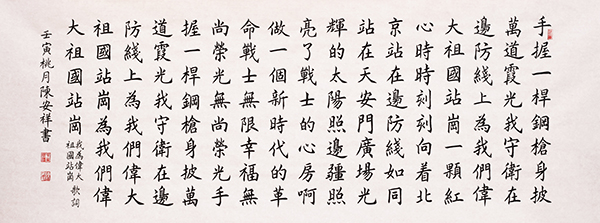 手握一桿鋼槍身披
萬道霞光我守衛在
邊防綫上為我們偉
大祖國站崗一顆紅
心時時刻刻向着北
京站在邊防綫如同
站在天安門廣場光
輝的太陽照邊疆照
亮了戰士的心房啊
做一個新時代的革
命戰士無限幸福無
尚榮光無尚榮光手
握一桿鋼槍身披萬
道霞光我守衛在邊
防綫上為我們偉大
祖國站崗為我們偉
大祖國站崗
我為偉大
祖國站崗
歌詞
壬寅桃月陳安祥書